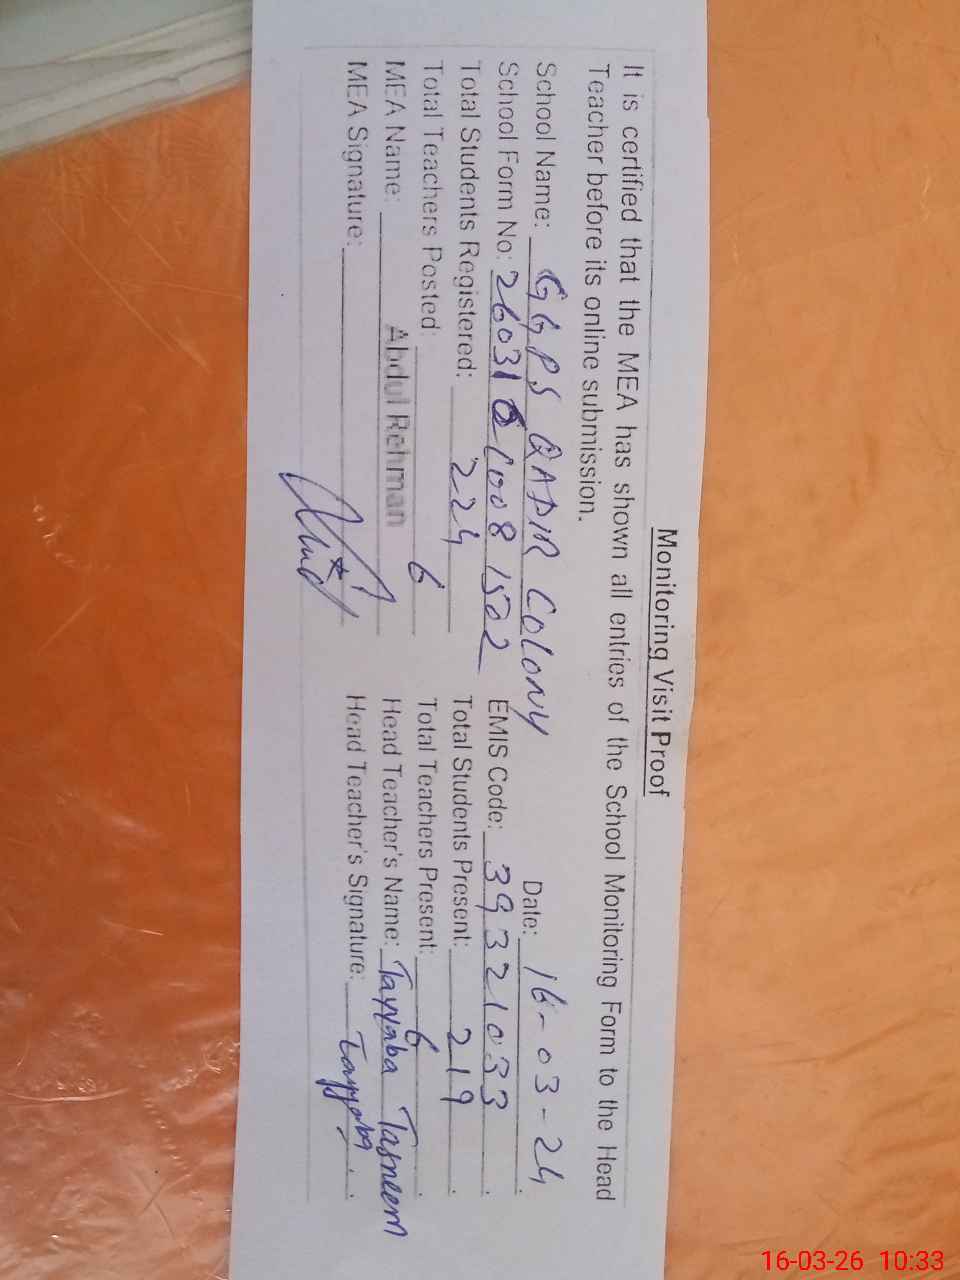 Monitoring Visit Proof
It is certified that the MEA has shown all entries of the School Monitoring Form to the Head
Teacher before its online submission.
School Name: GGPS QADIR COLONY Date: 16-03-24
School Form No: 26031010081502 EMIS Code: 39321033
Total Students Registered: 224 Total Students Present: 219
Total Teachers Posted: 6 Total Teachers Present: 6
MEA Name: Abdul Rehman Head Teacher's Name: Tayyaba Tasneem
MEA Signature: Head Teacher's Signature: Tayyaba
16-03-26 10:33